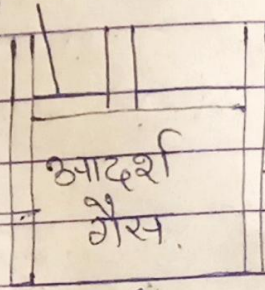 आदर्श
गैस.